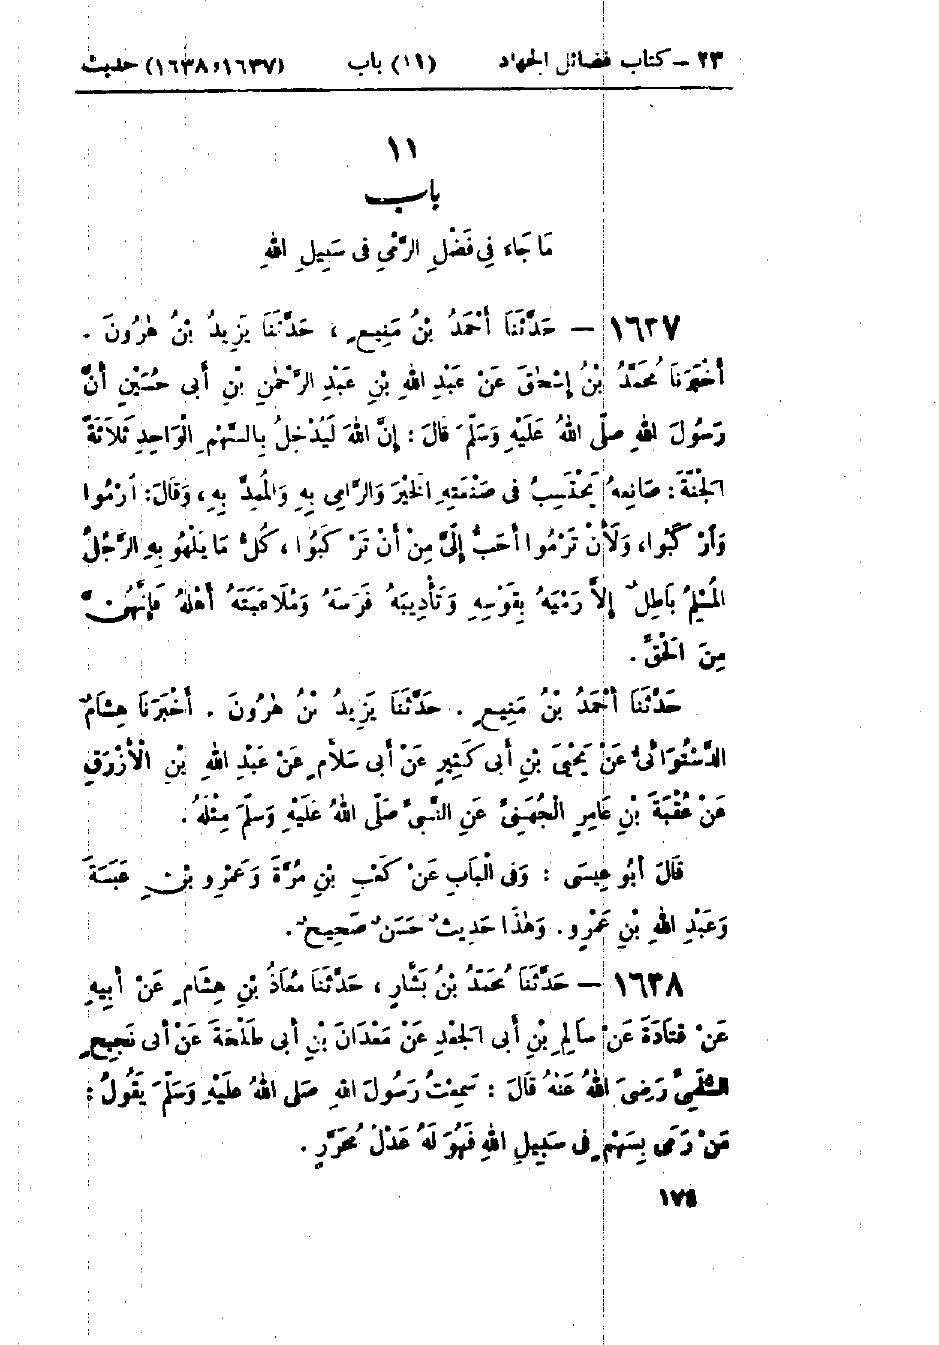 ٢٣ – كتاب فضائل الجهاد (١١) باب (١٦٣٧، ١٦٣٨) حديث
١١
باب
مَا جَاءَ فِي فَضْلِ الرَّمْيِ فِي سَبِيلِ اللهِ
١٦٣٧ – حَدَّثَنَا أَحْمَدُ بْنُ مَنِيعٍ، حَدَّثَنَا يَزِيدُ بْنُ هٰرُونَ.
أَخْبَرَنَا مُحَمَّدُ بْنُ إِسْحٰقَ عَنْ عَبْدِ اللهِ بْنِ عَبْدِ الرَّحْمٰنِ بْنِ أَبِى حُسَيْنٍ أَنَّ
رَسُولَ اللهِ صلَّى اللهُ عَلَيْهِ وَسَلَّمَ قَالَ: إِنَّ اللهَ لَيُدْخِلُ بِالسَّهْمِ الْوَاحِدِ ثَلَاثَةً
الْجَنَّةَ: صَانِعِهُ يَحْتَسِبُ فِى صَنْعَتِهِ الْخَيْرَ وَالرَّامِى بِهِ وَالْمُمِدَّ بِهِ، وَقَالَ: ارْمُوا
وَارْكَبُوا، وَلَأَنْ تَرْمُوا أَحَبُّ إِلَىَّ مِنْ أَنْ تَرْكَبُوا، كُلُّ مَا يَلْهُو بِهِ الرَّجُلُ
الْمُسْلِمُ بَاطِلٌ إِلاَّ رَمْيَهُ بِقَوْسِهِ وَتَأْدِيبَهُ فَرَسَهُ وَمُلَاعَبَتَهُ أَهْلَهُ فَإِنَّهُنَّ
مِنَ الْحَقِّ.
حَدَّثَنَا أَحْمَدُ بْنُ مَنِيعٍ. حَدَّثَنَا يَزِيدُ بْنُ هٰرُونَ. أَخْبَرَنَا هِشَامٌ
الدَّسْتُوَائُىُّ عَنْ يَحْيَى بْنِ أَبِى كَثِيرٍ عَنْ أَبِى سَلاَّمٍ عَنْ عَبْدِ اللهِ بْنِ الْأَزْرَقِ
عَنْ عُقْبَةَ بْنِ عَامِرٍ الْجُهَنِىِّ عَنِ النَّبِىِّ صَلَّى اللهُ عَلَيْهِ وَسَلَّمَ مِثْلَهُ.
قَالَ أَبُو عِيسَى: وَفِى الْبَابِ عَنْ كَعْبِ بْنِ مُرَّةَ وَعَمْرِو بْنِ عَبَسَةَ
وَعَبْدِ اللهِ بْنِ عَمْرٍو. وَهٰذَا حَدِيثٌ حَسَنٌ صَحِيحٌ.
١٦٣٨ – حَدَّثَنَا مُحَمَّدُ بْنُ بَشَّارٍ، حَدَّثَنَا مُعَاذُ بْنِ هِشَامٍ عَنْ أَبِيهِ
عَنْ قَتَادَةَ عَنْ سَالِمِ بْنِ أَبِى الْجَعْدِ عَنْ مَعْدَانَ بْنِ أَبِى طَلْحَةَ عَنْ أَبِى نَجِيحٍ
السُّلَمِىِّ رَضِىَ اللهُ عَنْهُ قَالَ: سَمِعْتُ رَسُولَ اللهِ صَلَّى اللهُ عَلَيْهِ وَسَلَّمَ يَقُولُ:
مَنْ رَمَى بِسَهْمٍ فِى سَبِيلِ اللهِ فَهُوَ لَهُ عَدْلُ مُحَرَّرٍ.
١٧٤